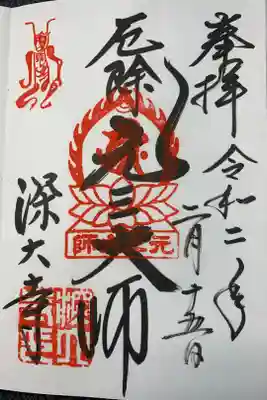 奉拝 令和二年
二月十五日
厄除 元三大師
深大寺
元三大師